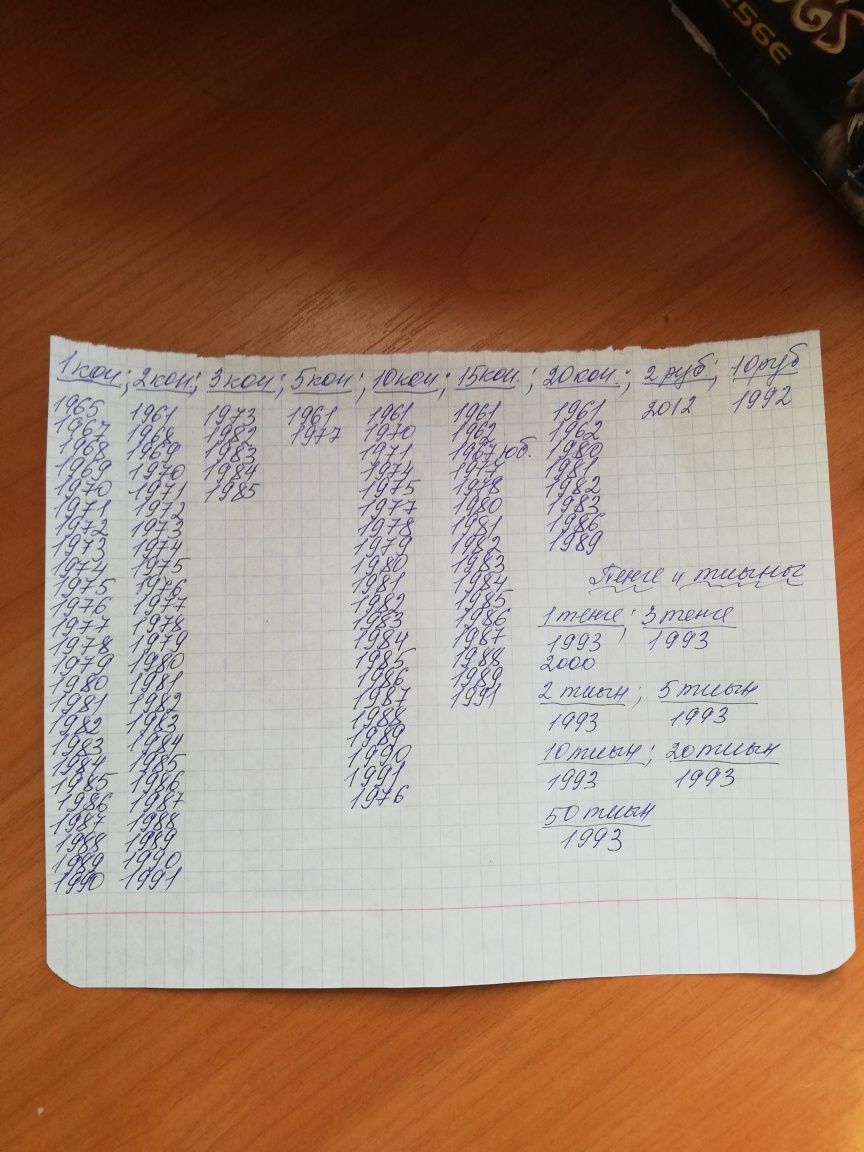 OGS
256E
1 коп; 2 коп; 3 коп; 5 коп; 10 коп; 15 коп.; 20 коп.; 2 руб; 10 руб
1965 1961 1973 1961 1961 1961 1961 2012 1992
1967 1968 1982 1977 1970 1962 1962
1968 1969 1983 1971 1967 юб. 1980
1969 1970 1984 1974 1977 1981
1970 1971 1985 1975 1978 1982
1971 1972 1977 1980 1983
1972 1973 1978 1981 1986
1973 1974 1979 1982 1989
1974 1975 1980 1983
1975 1976 1981 1984
1976 1977 1982 1985
1977 1978 1983 1986
1978 1979 1984 1987
1979 1980 1985 1988
1980 1981 1986 1989
1981 1982 1987 1991
1982 1983 1988
1983 1984 1989
1984 1985 1990
1985 1986 1991
1986 1987 1976
1987 1988
1988 1989
1989 1990
1990 1991
Тенге и тиыны
1 тенге; 3 тенге
1993 1993
2000
2 тиын; 5 тиын
1993 1993
10 тиын; 20 тиын
1993 1993
50 тиын
1993